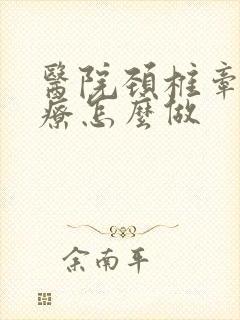 醫院頚椎牽
療怎麼做
余南平